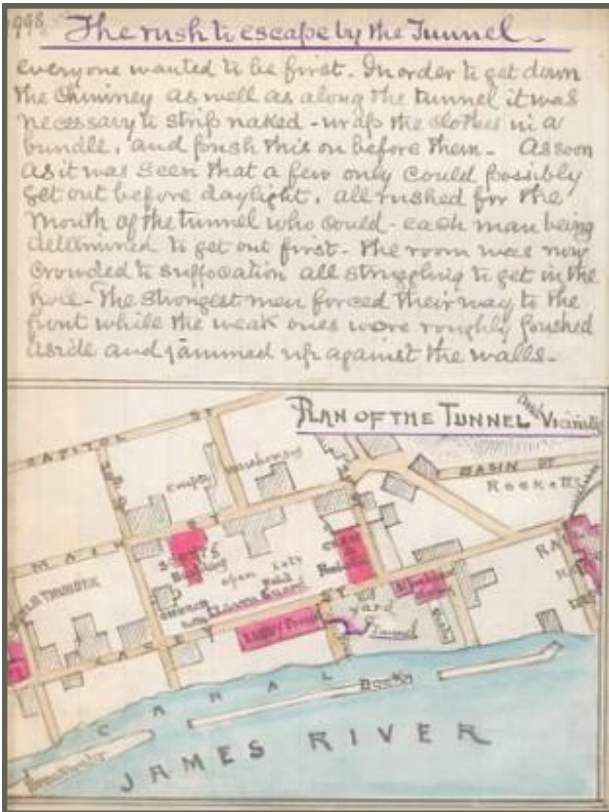 The rush to escape by the Tunnel
everyone wanted to be first. In order to get down
the chimney as well as along the tunnel it was
necessary to strip naked - wrap the clothes in a
bundle, and push this on before them. As soon
as it was seen that a few only could possibly
get out before daylight, all rushed for the
mouth of the tunnel who could - each man being
determined to get out first - the room was now
crowded to suffocation all struggling to get in the
hole - The strongest men forced their way to the
front while the weak ones were roughly pushed
aside and jammed up against the walls -
PLAN OF THE TUNNEL and Vicinity
CAPITOL ST
BASIN ST
Rocketts
empty
MAIN ST
open Lots
CHURCH
CAREY ST
yard
Tunnel
CANAL
Docks
JAMES RIVER